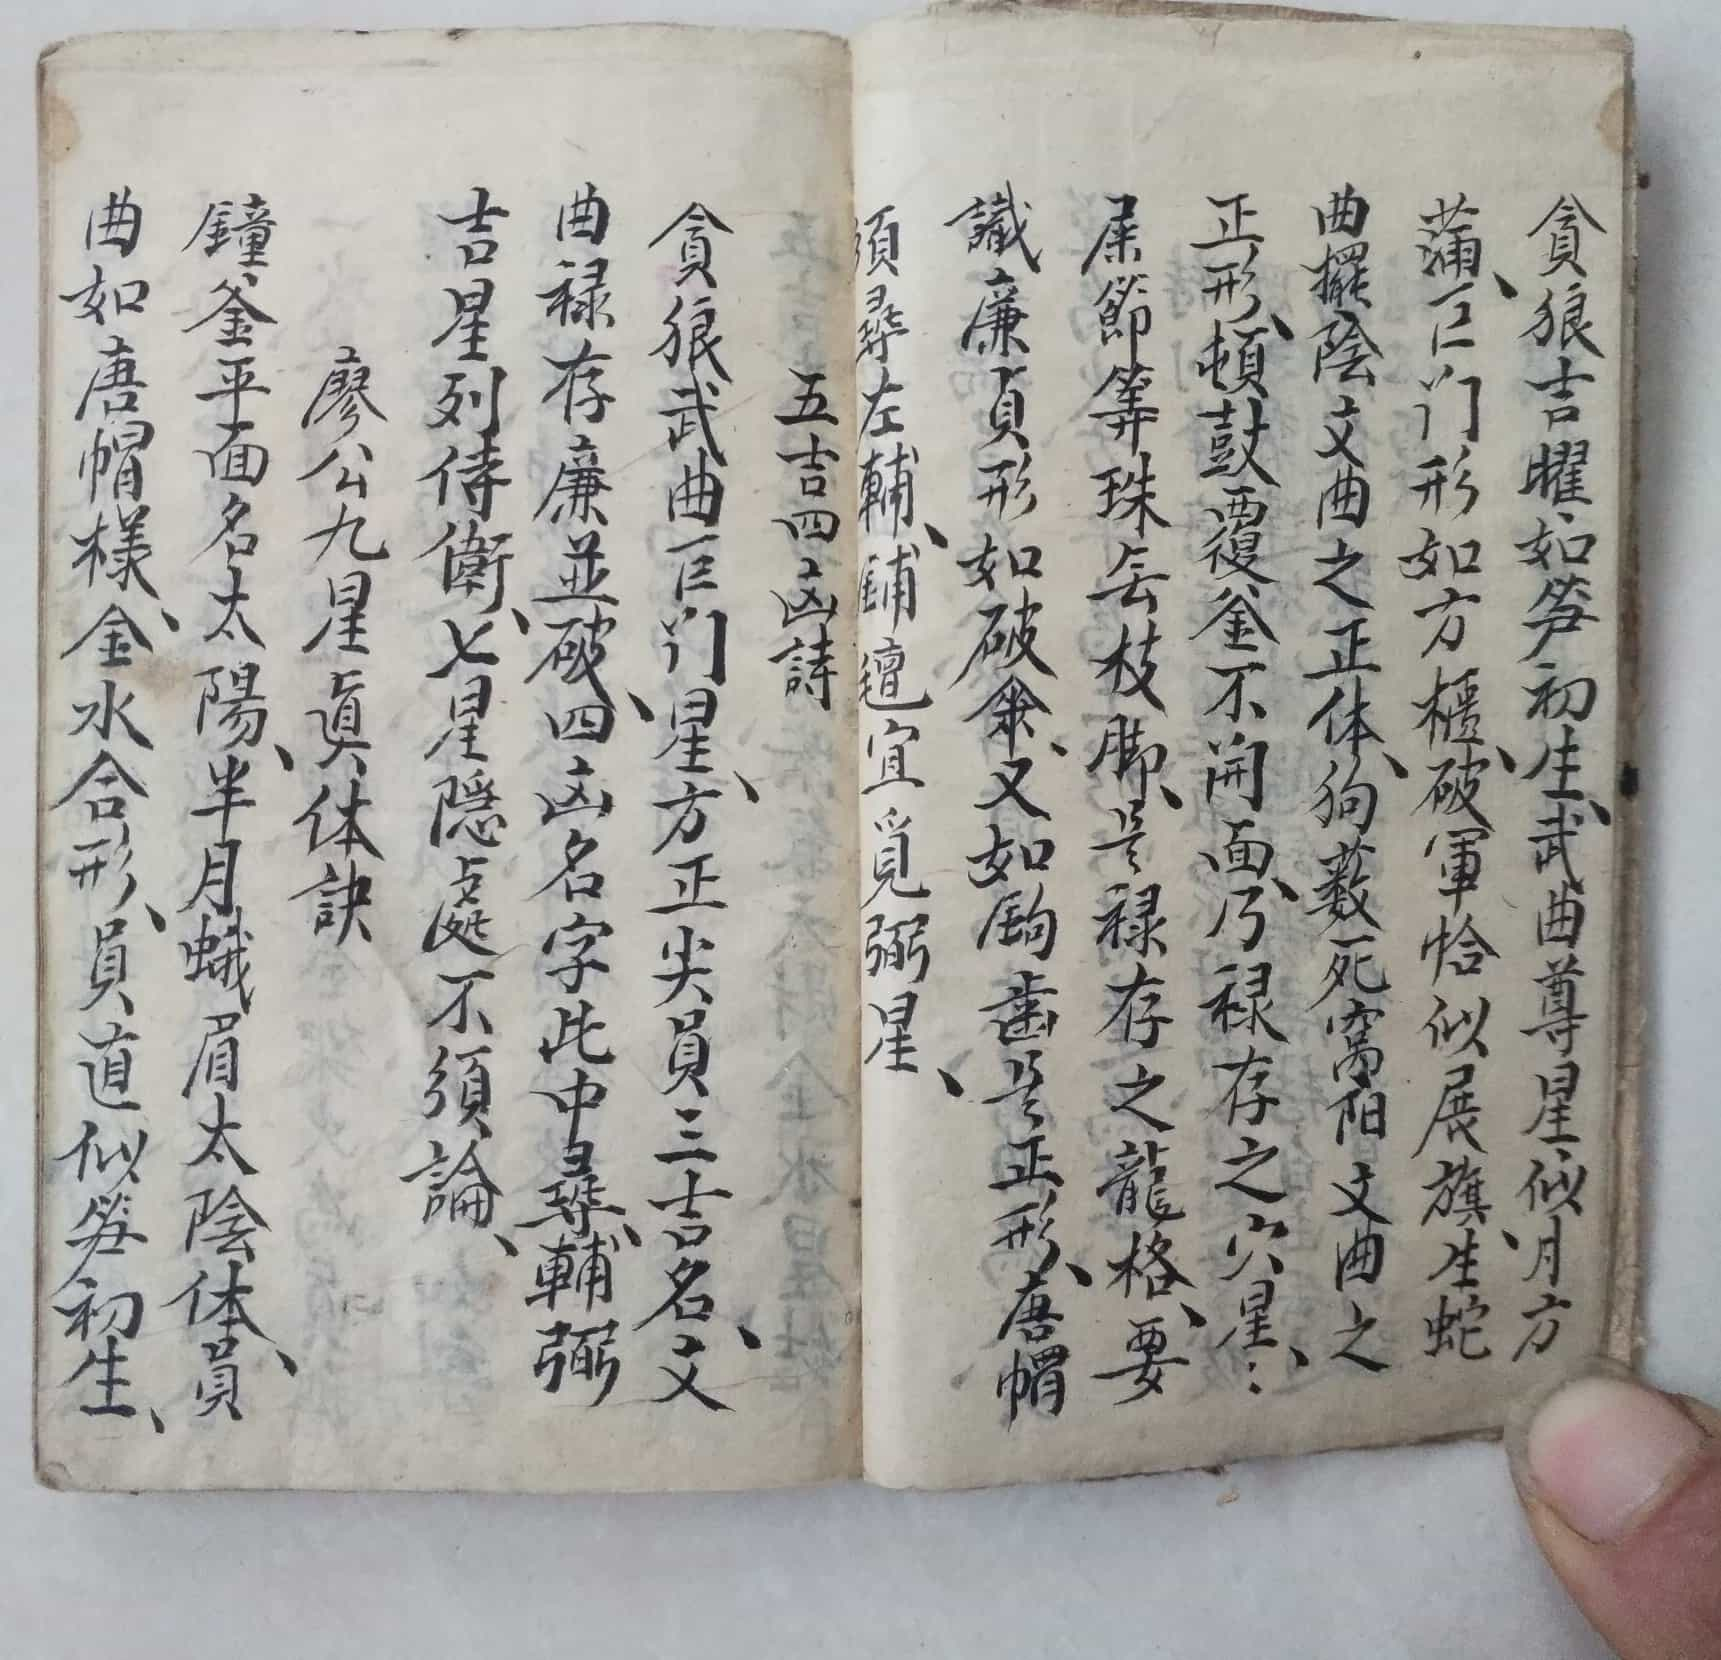 貪狼吉曜如笋初生、武曲尊星似月方
蒲、巨门形如方櫃、破軍恰似展旗、生蛇
曲擺陰文曲之正体、狗薮死窩阳文曲之
正形、頓鼓覆釜不開面、乃禄存之穴星、
屎節等珠无枝脚、是禄存之龍格、要
識廉貞形如破傘、又如鋸齒是正形、唐帽
須尋左輔、鋪氊宜覓弼星、
五吉四凶詩
貪狼武曲巨门星、方正尖員三吉名、文
曲禄存廉並破、四凶名字此中尋、輔弼
吉星列侍衛、七星隠處不須論、
廖公九星真体訣
鐘釜平面名太陽、半月蛾眉太陰体、員
曲如唐帽樣、金水合形、員直似笋初生、